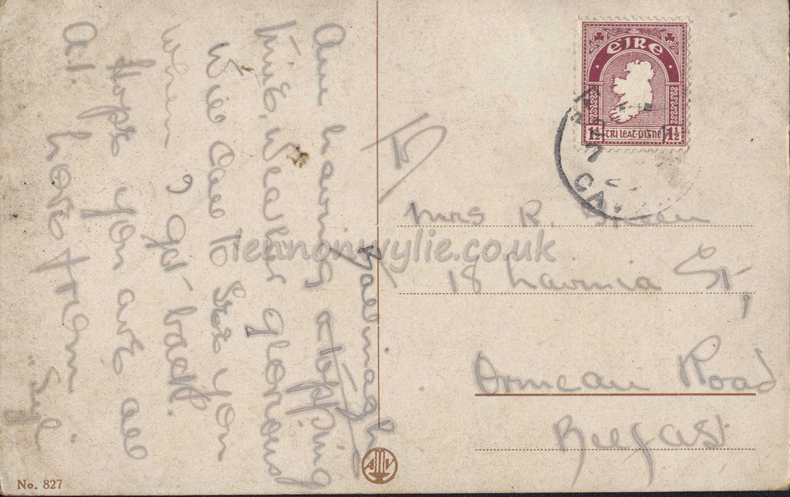 Am having a topping
time, Weather glorious
Will call to see you
when I get back.
Hope you are all
A1. Love from
EIRE
1½ TRI LEAT-PIGNE 1½
CA
Mrs R.
18 Lavinia St,
Ormeau Road
Belfast
lennonwylie.co.uk
No. 827